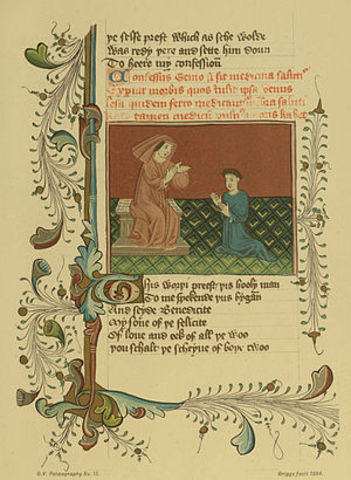 þe selfe prest which as sche wolde
Was redy þere and sette him doun
To heere my confessioun
Confessus Genio si sit medicina salutis
morbis quos tulit ipsa venus
lesa quidem ferro saluti
tamen
This worþi preest þis hooly man
To me spekende þus bygan
And seyde Benedicite
My sone of þe felicite
Of loue and eek of all þe woo
þou schalt þe schryue of boþe twoo
Palaeography No. 13.
Griggs